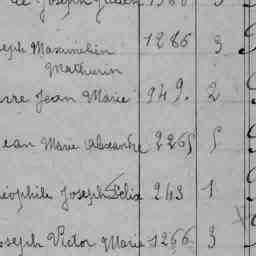 de Joseph Julien 1566 3
seph Maximilien 1286 3
Mathurin
erre Jean Marie 949. 2
ean Marie Alexandre 2265 5
éophile Joseph Félix 243 1
oseph Victor Marie 1266 3